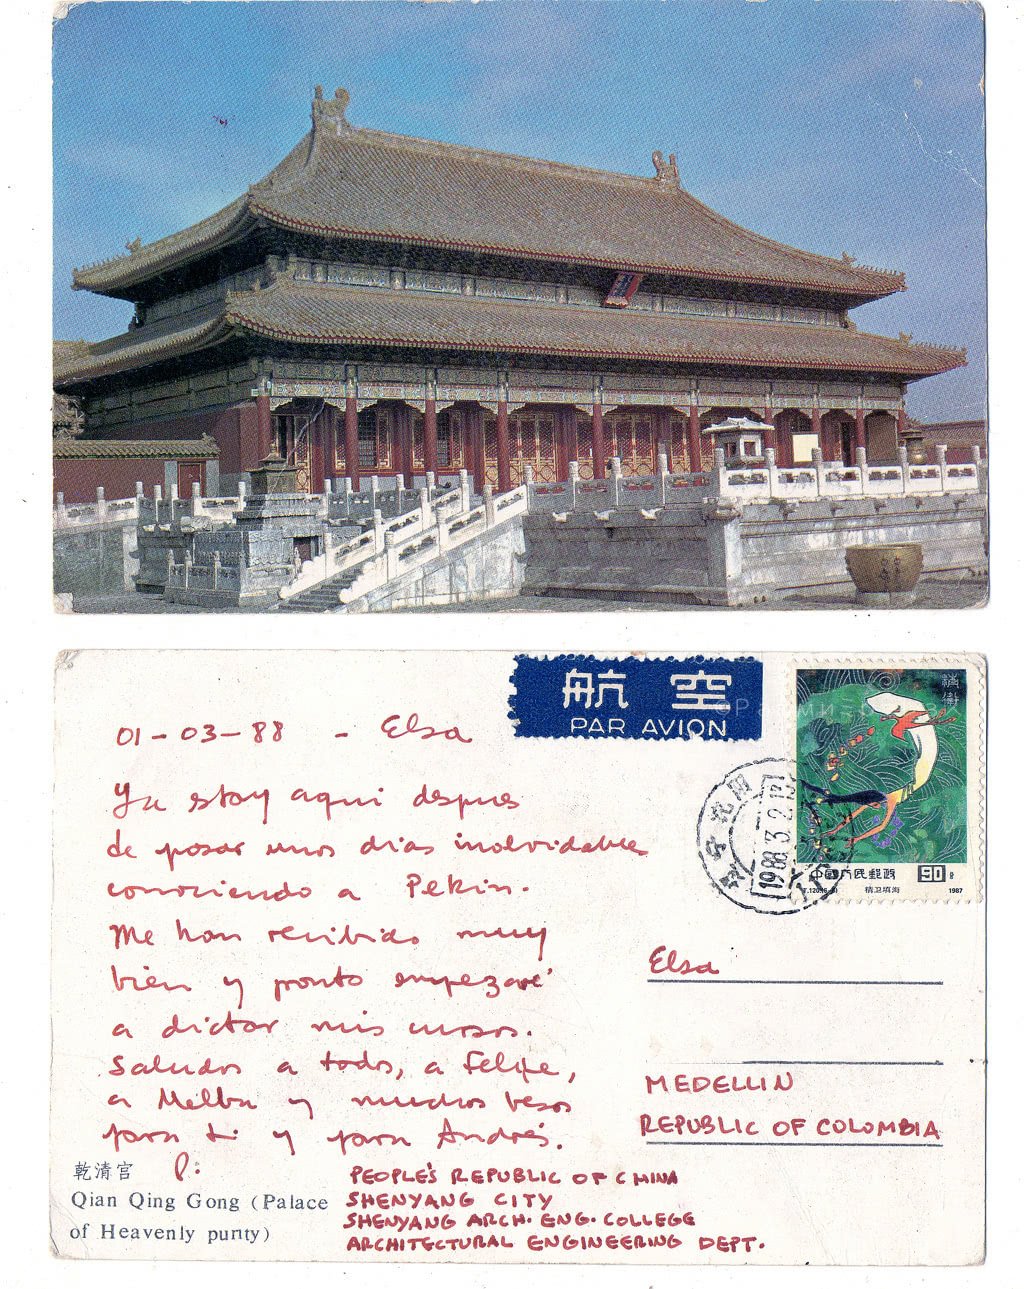 航空
PAR AVION
01-03-88 - Elsa
Ya estoy aqui despues
de pasar unos dias inolvidables
conociendo a Pekin.
Me han recibido muy
bien y pronto empezaré
a dictar mis cursos.
Saludos a todos, a Felipe,
a Melba y muchos besos
para ti y para Andrés.
P:
1988.3.2.13
中国人民邮政
90分
T.120.(6-3)
精卫填海
1987
Elsa
MEDELLIN
REPUBLIC OF COLOMBIA
乾清宫
Qian Qing Gong (Palace
of Heavenly purity)
PEOPLE'S REPUBLIC OF CHINA
SHENYANG CITY
SHENYANG ARCH. ENG. COLLEGE
ARCHITECTURAL ENGINEERING DEPT.